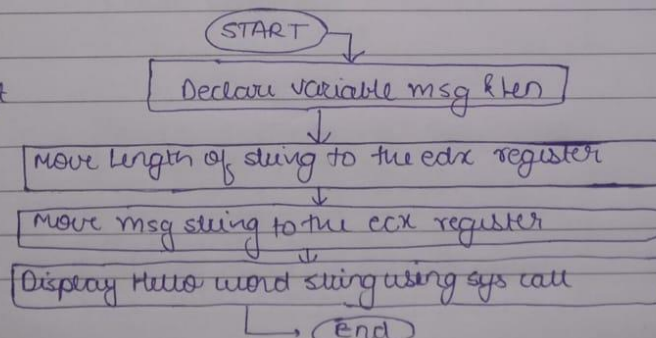 START
Declare variable msg & len
Move length of string to the edx register
Move msg string to the ecx register
Display Hello word string using sys call
End